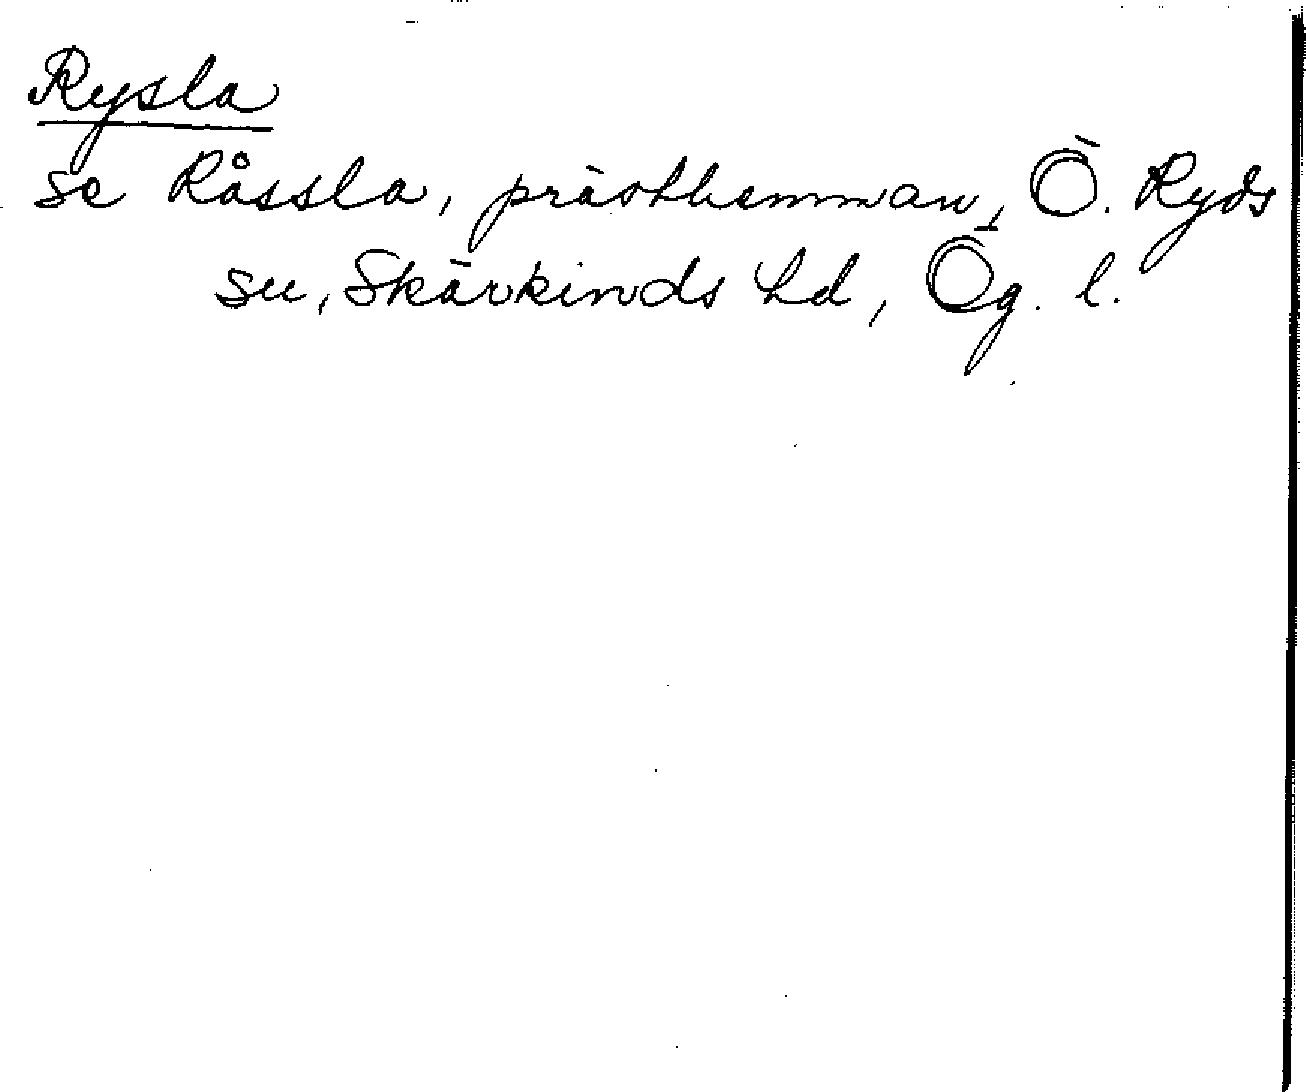 Rysla
se Råssla, prästhemman, Ö. Ryds
sn, Skärkinds hd, Ög. l.